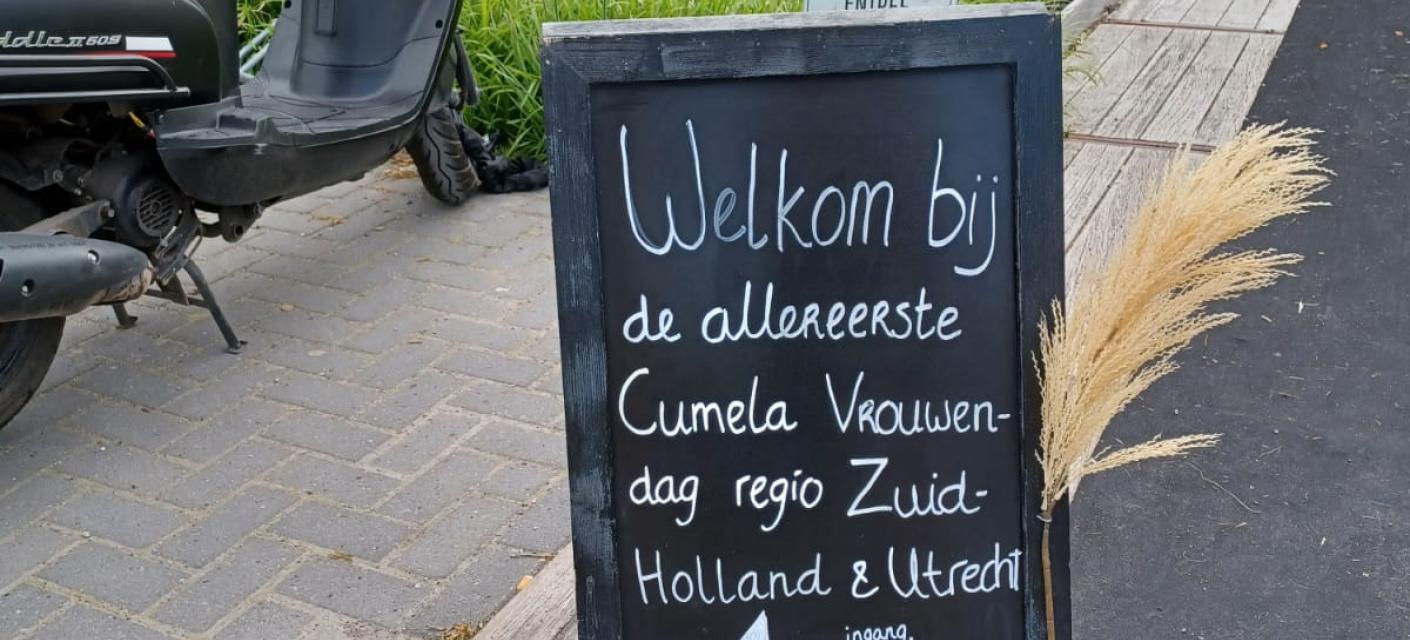 ENTREE
Welkom bij
de allereerste
Cumela Vrouwen-
dag regio Zuid-
Holland & Utrecht
ingang.